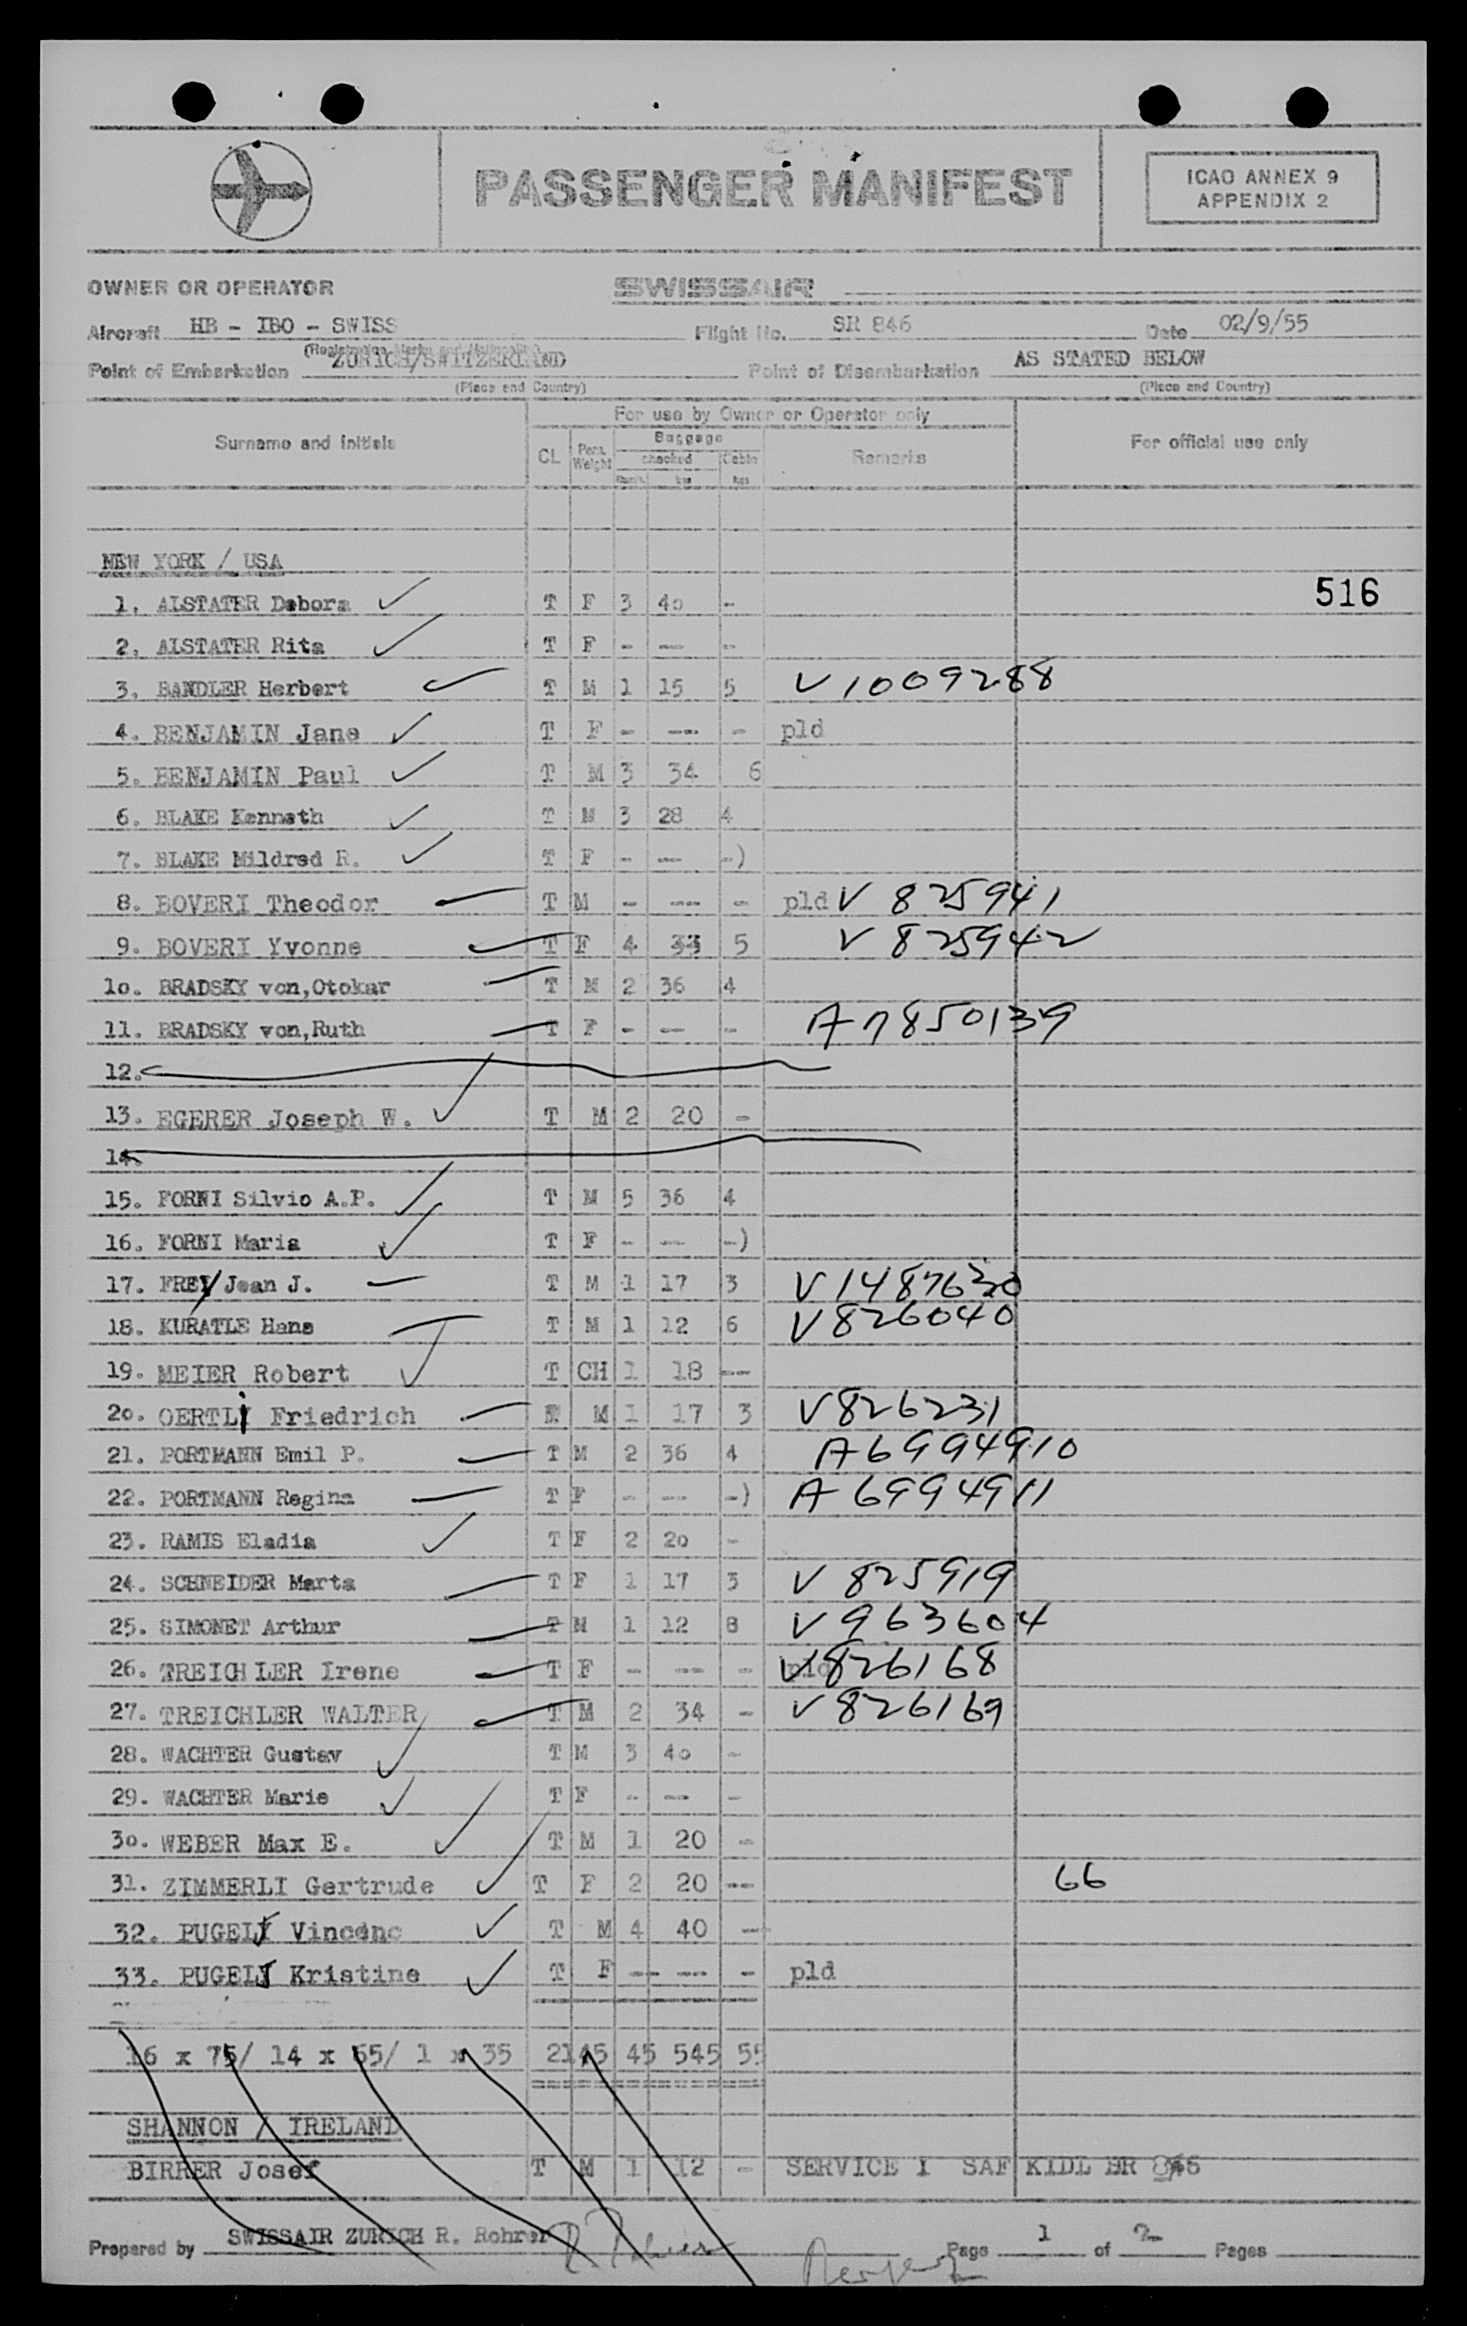 PASSENGER MANIFEST
ICAO ANNEX 9
APPENDIX 2
OWNER OR OPERATOR SWISSAIR
Aircraft HB - IBO - SWISS Flight No. SR 846 Date 02/9/55
(Registration Marks and Nationality)
Point of Embarkation ZURICH/SWITZERLAND Point of Disembarkation AS STATED BELOW
(Place and Country) (Place and Country)
For use by Owner or Operator only
Surname and initials CL Pers. Weight Baggage checked kgs Cabin kgs Remarks For official use only
NEW YORK / USA
516
1. ALSTATER Debora T F 3 4o -
2. ALSTATER Rita T F - --- -
3. BANDLER Herbert T M 1 15 5 V1009288
4. BENJAMIN Jane T F - --- - pld
5. BENJAMIN Paul T M 3 34 6
6. BLAKE Kenneth T M 3 28 4
7. BLAKE Mildred R. T F - --- -)
8. BOVERI Theodor T M - --- - pld V 825941
9. BOVERI Yvonne T F 4 33 5 V 825942
1o. BRADSKY von,Otokar T M 2 36 4
11. BRADSKY von,Ruth T F - --- - A7850139
12.
13. EGERER Joseph W. T M 2 20 -
14.
15. FORNI Silvio A.P. T M 5 36 4
16. FORNI Maria T F - --- -)
17. FREY Jean J. T M 1 17 3 V1487630
18. KURATLE Hans T M 1 12 6 V826040
19. MEIER Robert T CH 1 18 --
2o. OERTLI Friedrich M 1 17 3 V826231
21. PORTMANN Emil P. T M 2 36 4 A6994910
22. PORTMANN Regina T F - --- -) A6994911
23. RAMIS Eladia T F 2 2o -
24. SCHNEIDER Marta T F 1 17 3 V 825919
25. SIMONET Arthur T M 1 12 8 V963604
26. TREICHLER Irene T F - --- - pld V826168
27. TREICHLER WALTER T M 2 34 - V826169
28. WACHTER Gustav T M 3 4o -
29. WACHTER Marie T F - --- -
3o. WEBER Max E. T M 1 20 -
31. ZIMMERLI Gertrude T F 2 20 -- 66
32. PUGELJ Vincenc T M 4 40 --
33. PUGELJ Kristine T F -- --- - pld
16 x 75/ 14 x 65/ 1 x 35 2145 45 545 55
SHANNON / IRELAND
BIRRER Josef T M 1 12 - SERVICE I SAF KIDL
Prepared by SWISSAIR ZURICH R. Rohrer Page 1 of 2 Pages